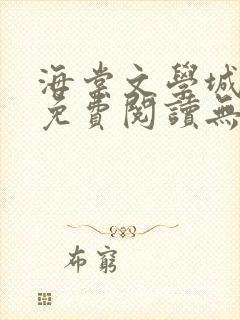 海棠文學城
免費閱讀無
布窮